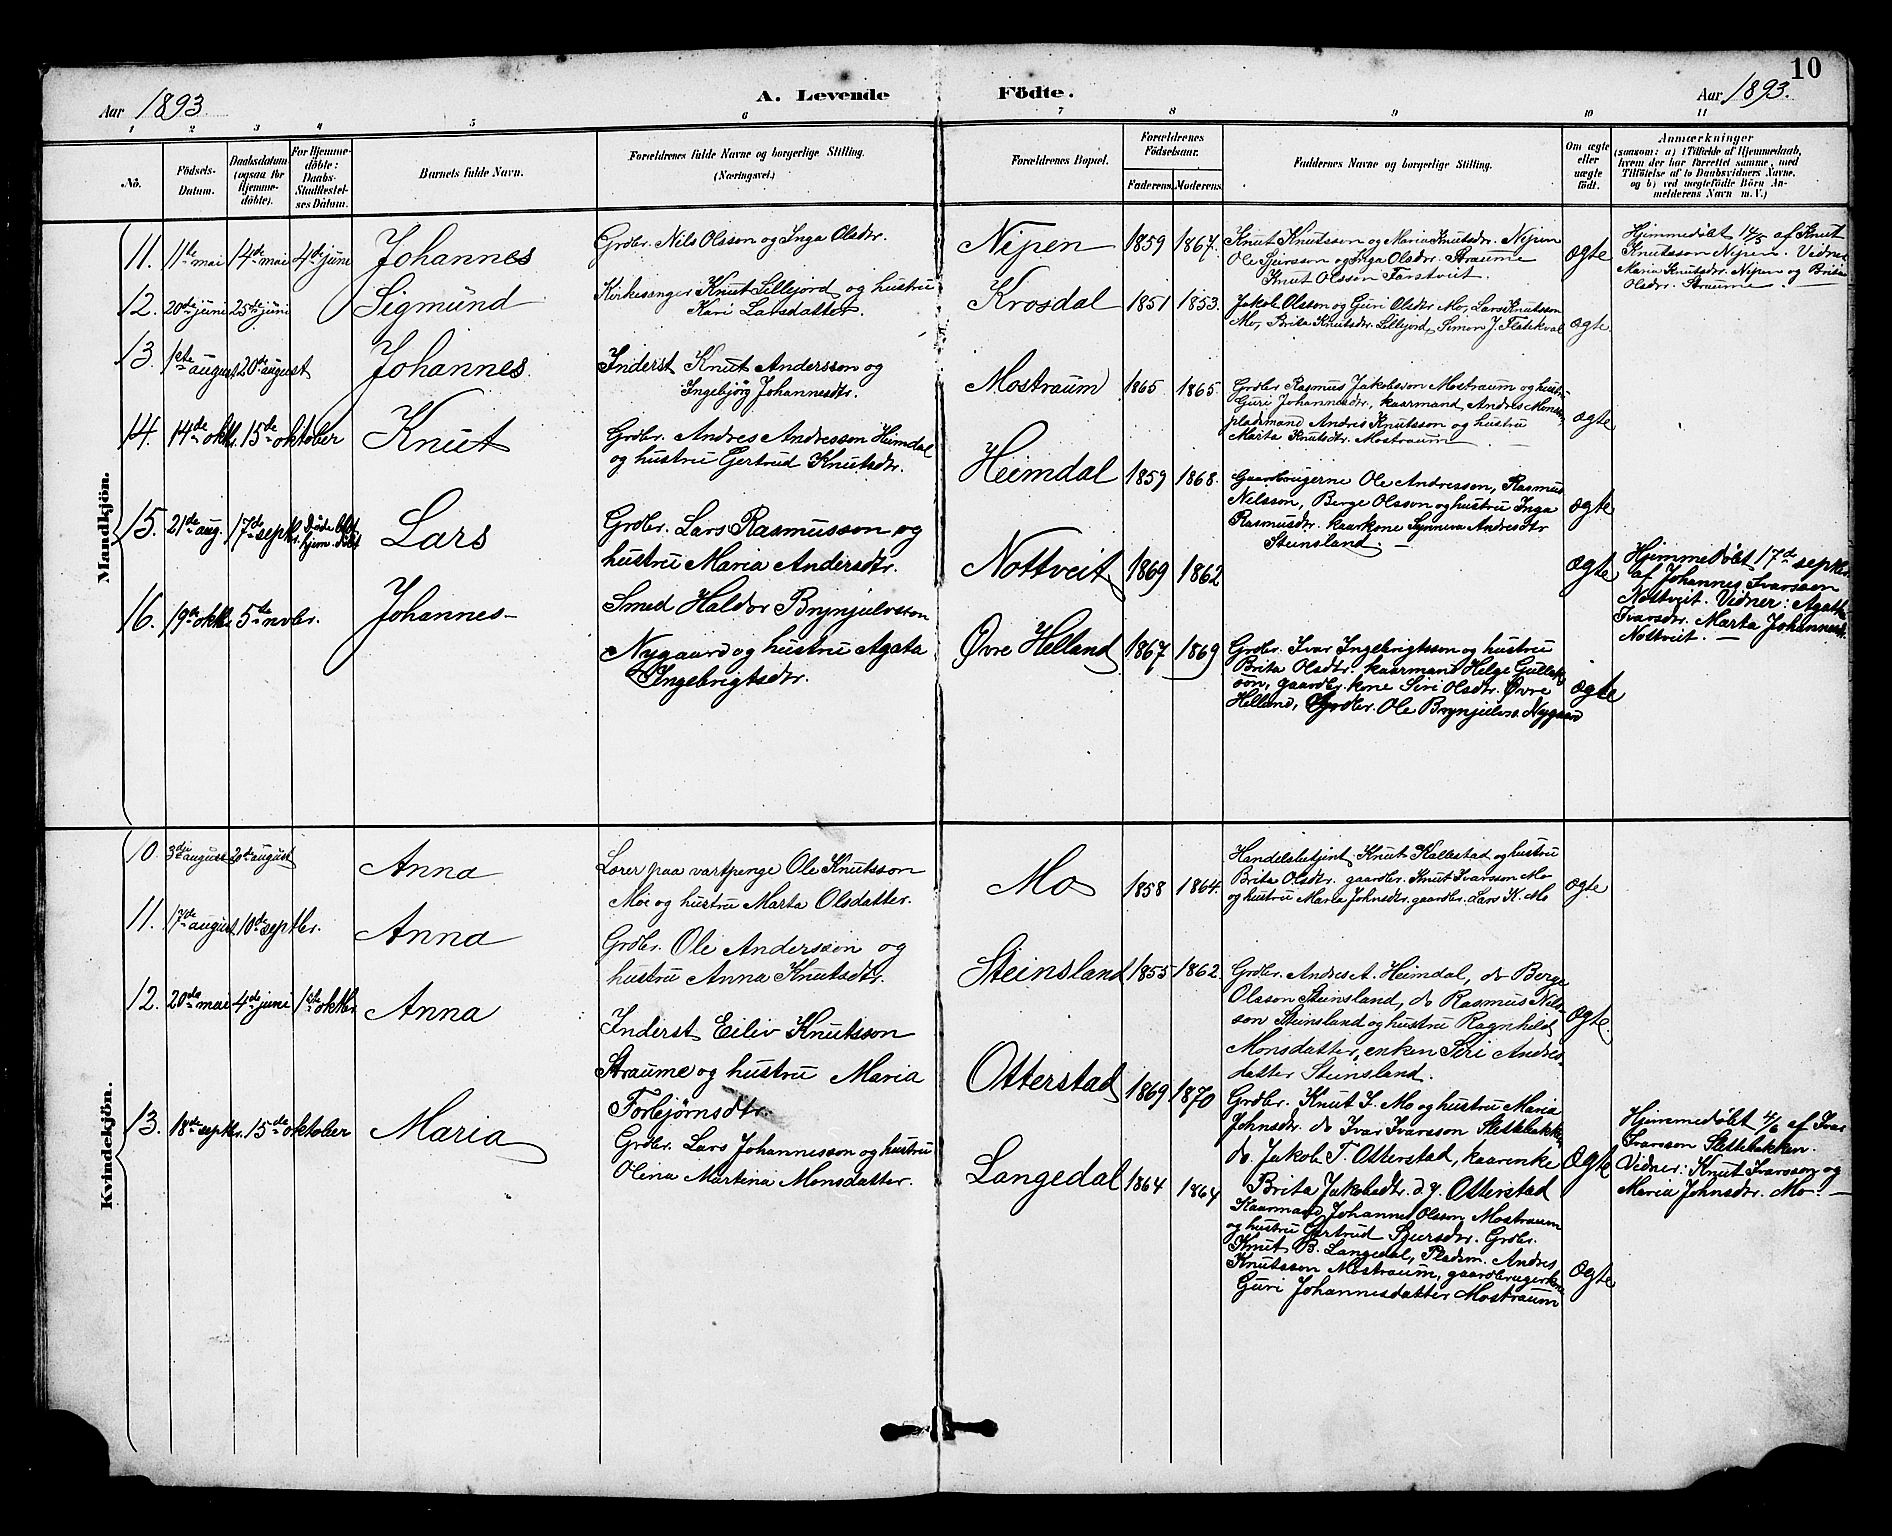 10
Aar 1893.
A. Levende Födte.
Aar 1893.
1 2 3 4 5 6 7 8 9 10 11
No.
Födsels-
Datum.
Daabsdatum
(ogsaa for
Hjemme-
döbte).
For Hjemme-
döbte:
Daabs-
Stadfæstel-
ses Datum.
Barnets fulde Navn.
Forældrenes fulde Navne og borgerlige Stilling.
(Næringsvei.)
Forældrenes Bopæl.
Forældrenes
Födselsaar.
Faderens.
Moderens.
Faddernes Navne og borgerlige Stilling.
Om ægte
eller
uægte
födt.
Anmærkninger
(saasom: a) i Tilfælde af Hjemmedaab,
hvem der har forrettet samme, med
Tilföielse af to Daabsvidners Navne,
og b) ved uægtefödte Börn An-
melderens Navn m. V.)
Mandkjön.
11. 11te mai 14de mai 4de juni Johannes
Grdbr. Nils Olsson og Inga Olsdtr.
Nejpen 1859 1867.
Knut Knutsson og Maria Knutsdtr. Nejpen
Ole Sjursson og Inga Olsdtr. Straume
Knut Olsson Farstveit.
ægte
Hjemmedøbt 14/5 af Knut
Knutsson Nejpen. Vidner
Maria Knutsdtr. Nejpen og Brita
Olsdtr. Straume
12. 20de juni 25de juni Sigmund
Kirkesanger Knut Lillejord og hustru
Kari Larsdatter.
Krosdal 1851 1853.
Jakob Olsson og Guri Olsdtr Mo, Lars Knutsson
Mo, Brita Knutsdtr. Lillejord, Simon J. Flatekval
ægte
13. 1ste august 20de august Johannes
Inderst Knut Andersson og
Ingebjørg Johannesdtr.
Mostraum 1865 1865.
Grdbr Rasmus Jakobsson Mostraum og hustru
Guri Johannesdtr., kaarmand Andres Monss.
pladsmand Andres Knutsson og hustru
Marta Knutsdtr. Mostraum
ægte
14. 14de oktbr. 15de oktober Knut
Grdbr. Andres Andresson Heimdal
og hustru Gertrud Knutsdtr.
Heimdal 1859 1868.
Gaardbrugerne Ole Andresson, Rasmus
Nilsson, Berge Olsson og hustru Inga
Rasmusdtr. kaarkone Synneva Andresdtr
Steinsland.
ægte
15. 21de aug. 17de septbr. Døde blot
hjem. døbt Lars
Grdbr. Lars Rasmusson og
hustru Maria Andersdtr.
Nottveit 1869 1862
ægte
Hjemmedøbt 17de septbr.
af Johannes Ivarsson
Nottveit. Vidner: Agatha
Ivarsdtr. Marta Johannesd.
Nottveit.
16. 19de oktbr. 5te novbr. Johannes
Smed Haldor Brynjulvsson
Nygaard og hustru Agata
Ingebrigtsdtr.
Øvre Helland 1867 1869
Grdbr. Ivar Ingebrigtsson og hustru
Brita Olsdtr. kaarmand Helge Gullak-
son, gaardbr. kone Siri Olsdtr. Øvre
Helland, Grdbr. Ole Brynjulvs. Nygaard
ægte
Kvindekjön.
10. 3die august 20de august Anna
Lærer paa vartpenge Ole Knutsson
Moe og hustru Marta Olsdatter.
Mo 1858 1864.
Handelsbetjent Knut Kallestad og hustru
Brita Olsdtr. gaardbr. Knut Ivarsson Mo
og hustru Maria Johnsdtr. gaardbr. Lars K. Mo
ægte
11. 17de august 10de septbr. Anna
Grdbr. Ole Andersson og
hustru Anna Knutsdtr.
Steinsland 1855 1862
Grdbr. Andres A. Heimdal, do Berge
Olsson Steinsland, do Rasmus Nils-
son Steinsland og hustru Ragnhild
Monsdatter, enken Siri Andres-
datter Steinsland.
ægte
12. 20de mai 4de juni 1ste oktbr. Anna
Inderst Eiliv Knutsson
Straume og hustru Maria
Torbjørnsdtr.
Otterstad 1869 1870
Grdbr. Knut I. Mo og hustru Maria
Johnsdtr. do Ivar Ivarsson Slettebakken
do. Jakob T. Otterstad, kaarenke
Brita Jakobsdtr. d.y. Otterstad
ægte
Hjemmedøbt 4/6 af Ivar
Ivarsson Slettebakken.
Vidner: Knut Ivarsson og
Maria Johnsdtr. Mo.
13. 18de septbr. 15de oktober Maria
Grdbr. Lars Johannesson og hustru
Olina Martina Monsdatter.
Langedal 1864 1864
Kaarmand Johannes Olsson Mostraum
og hustru Gertrud Sjursdtr. Grdbr.
Knut B. Langedal, Pladsm. Andres
Knutsson Mostraum, gaardbrugerkone
Guri Johannesdatter Mostraum
ægte